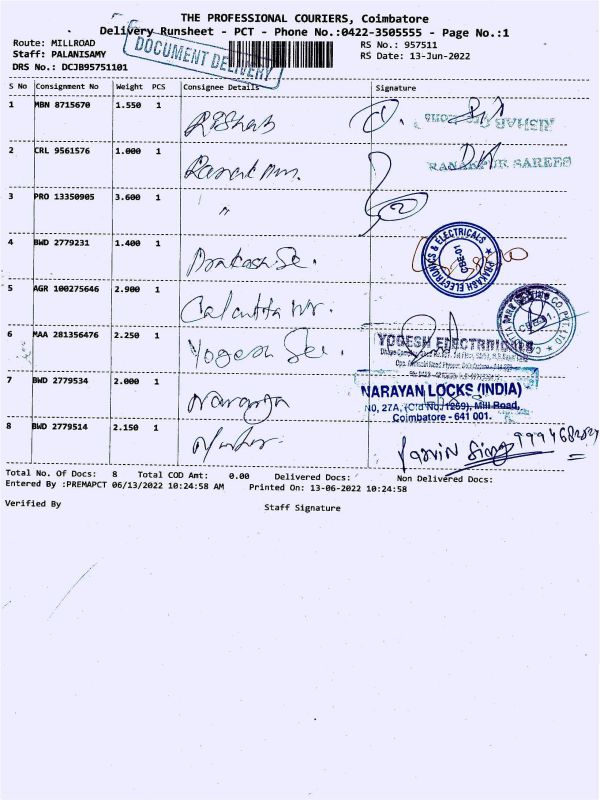 THE PROFESSIONAL COURIERS, Coimbatore
Delivery Runsheet - PCT - Phone No.:0422-3505555 - Page No.:1
Route: MILLROAD
RS No.: 957511
Staff: PALANISAMY
RS Date: 13-Jun-2022
DRS No.: DCJB95751101
DOCUMENT DELIVERY
S No Consignment No Weight PCS Consignee Details Signature
1 MBN 8715670 1.550 1
RISHAB
2 CRL 9561576 1.000 1
RANAKPUR SAREES
3 PRO 13350905 3.600 1 "
4 BWD 2779231 1.400 1
PRAKASH ELECTRONICS & ELECTRICALS
5 AGR 100275646 2.900 1 Calcutta
6 MAA 281356476 2.250 1 Yogesh
YOGESH ELECTRICALS
7 BWD 2779534 2.000 1
NARAYAN LOCKS (INDIA)
NO, 27A, (Old No. 1259), Mill Road,
Coimbatore - 641 001.
8 BWD 2779514 2.150 1
Total No. Of Docs: 8 Total COD Amt: 0.00 Delivered Docs: Non Delivered Docs:
Entered By :PREMAPCT 06/13/2022 10:24:58 AM Printed On: 13-06-2022 10:24:58
Verified By
Staff Signature